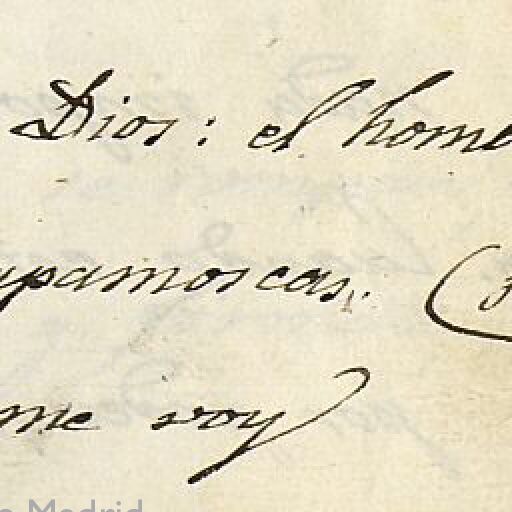 Dios: el homb
apamoscas.
me voy
Madrid